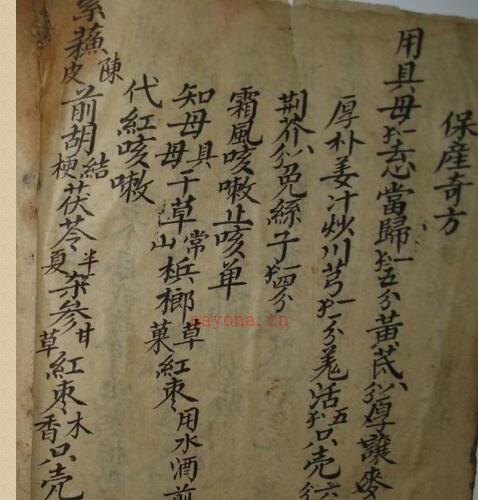 保產奇方
用貝母去心當歸一五分黃芪八分厚
厚朴姜汁炒川芎一分羌活五只壳六分
荆芥八分兔絲子一四分
霜風咳嗽止咳单
知母貝母干草常山梹榔草菓紅枣用水酒煎
代紅咳嗽
紫蘓陳皮前胡結梗茯苓半夏参甘草紅枣木香只壳
nayona.cn